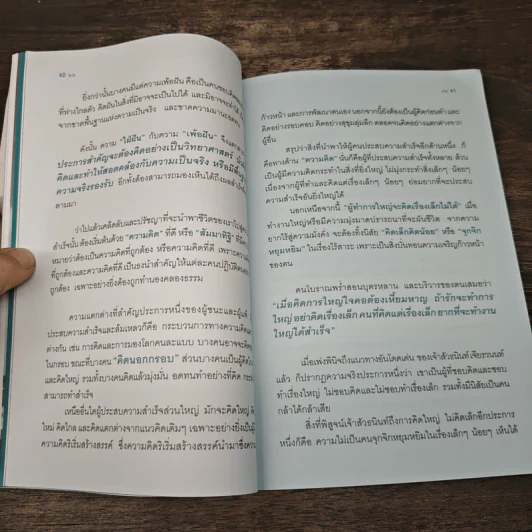 40 >>
ยิ่งกว่านั้นบางคนมีแต่ความเพ้อฝัน คือเป็นคนชอบคิด
ที่ห่างไกลตัว คิดฝันในสิ่งที่มิอาจจะเป็นไปได้ และมิอาจจะทำได้
จากขาดพื้นฐานแห่งความเป็นจริง และขาดความมานะอดทน
ดังนั้น ความ "ใฝ่ฝัน" กับความ "เพ้อฝัน" จึง
ประการสำคัญจะต้องคิดอย่างเป็นวิทยาศาสตร์
คิดและทำให้สอดคล้องกับความเป็นจริง หรือมี
ความจริงรองรับ อีกทั้งต้องสามารถมองเห็นได้ถึงผลสำเร็จ
ตามมา
ว่าไปแล้วเคล็ดลับและปรัชญาที่จะนำพาชีวิตของเราไปสู่
สำเร็จนั้น ต้องเริ่มต้นด้วย "ความคิด" ที่ดี หรือ "สัมมาทิฐิ"
หมายว่าต้องเป็นความคิดที่ถูกต้อง หรือความคิดที่ดี เพราะความ
ที่ถูกต้องและความคิดที่ดี เป็นธงนำสำคัญให้แต่ละคนปฏิบัติตน
ถูกต้อง เฉพาะอย่างยิ่งต้องถูกทำนองคลองธรรม
ความแตกต่างที่สำคัญประการหนึ่งของผู้ชนะและผู้แพ้
ประสบความสำเร็จและล้มเหลวก็คือ กระบวนการทางความคิด
ต่างกัน เช่น การคิดและการมองโลกคนละแบบ บางคนอาจจะคิด
ในกรอบ ขณะที่บางคน "คิดนอกกรอบ" ส่วนบางคนเป็นผู้คิด
และคิดใหญ่ รวมทั้งบางคนคิดแล้วมุ่งมั่น อดทนทำอย่างที่คิด
สามารถทำสำเร็จ
เหนืออื่นใดผู้ประสบความสำเร็จส่วนใหญ่ มักจะคิดใหญ่ คิด
ใหม่ คิดไกล และคิดแตกต่างจากแนวคิดเดิมๆ เฉพาะอย่างยิ่งเป็นผู้
ความคิดริเริ่มสร้างสรรค์ ซึ่งความคิดริเริ่มสร้างสรรค์นำมาซึ่งความ
<< 41
ก้าวหน้า และการพัฒนาตนเอง นอกจากนี้ยังต้องเป็นผู้คิดก่อนทำ และ
คิดอย่างรอบคอบ คิดอย่างสุขุมลุ่มลึก ตลอดจนคิดอย่างแตกต่างจาก
ผู้อื่น
สรุปว่าสิ่งที่นำพาให้ผู้คนประสบความสำเร็จอีกด้านหนึ่ง ก็
คือทางด้าน "ความคิด" นั่นก็คือผู้ที่ประสบความสำเร็จทั้งหลาย ล้วน
เป็นผู้มีความคิดกระทำในสิ่งที่ยิ่งใหญ่ ไม่มุ่งกระทำสิ่งเล็กๆ น้อยๆ
เนื่องจากผู้ที่ทำและคิดแต่เรื่องเล็กๆ น้อยๆ ย่อมยากที่จะประสบ
ความสำเร็จอันยิ่งใหญ่ได้
นอกเหนือจากนี้ "ผู้ทำการใหญ่จะคิดเรื่องเล็กไม่ได้" เมื่อ
ทำงานใหญ่หรือมีความมุ่งมาดปรารถนาที่จะผันชีวิต จากความ
ยากไร้สู่ความมั่งคั่ง จะต้องทิ้งนิสัย "คิดเล็กคิดน้อย" หรือ "จุกจิก
หยุมหยิม" ในเรื่องไร้สาระ เพราะเป็นสิ่งบั่นทอนความเจริญก้าวหน้า
ของตน
คนโบราณพร่ำสอนบุตรหลาน และบริวารของตนเสมอว่า
"เมื่อคิดการใหญ่ใจคอต้องเหี้ยมหาญ ถ้ารักจะทำการ
ใหญ่ อย่าคิดเรื่องเล็ก คนที่คิดแต่เรื่องเล็ก ยากที่จะทำงาน
ใหญ่ได้สำเร็จ"
เมื่อเพ่งพินิจถึงแนวทางอันโดดเด่น ของเจ้าสัวธนินท์ เจียรวนนท์
แล้ว ก็ปรากฏความจริงประการหนึ่งว่า เขาเป็นผู้ที่ชอบคิดและชอบ
ทำเรื่องใหญ่ ไม่ชอบคิดและไม่ชอบทำเรื่องเล็ก รวมทั้งมีนิสัยเป็นคน
กล้าได้กล้าเสีย
สิ่งที่พิสูจน์เจ้าสัวธนินท์ถึงการคิดใหญ่ ไม่คิดเล็กอีกประการ
หนึ่งก็คือ ความไม่เป็นคนจุกจิกหยุมหยิมในเรื่องเล็กๆ น้อยๆ เห็นได้